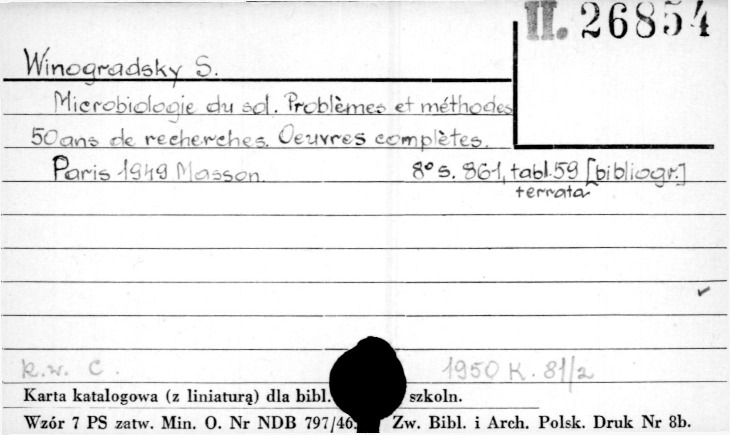 II. 26854
Winogradsky S.
Microbiologie du sol. Problèmes et méthodes
50 ans de recherches. Oeuvres complètes.
Paris 1949 Masson. 8° s. 861, tabl. 59 [bibliogr.]
terrata
k.w. C. 1950 K. 81/2
Karta katalogowa (z liniaturą) dla bibl. szkoln.
Wzór 7 PS zatw. Min. O. Nr NDB 797/46. Zw. Bibl. i Arch. Polsk. Druk Nr 8b.